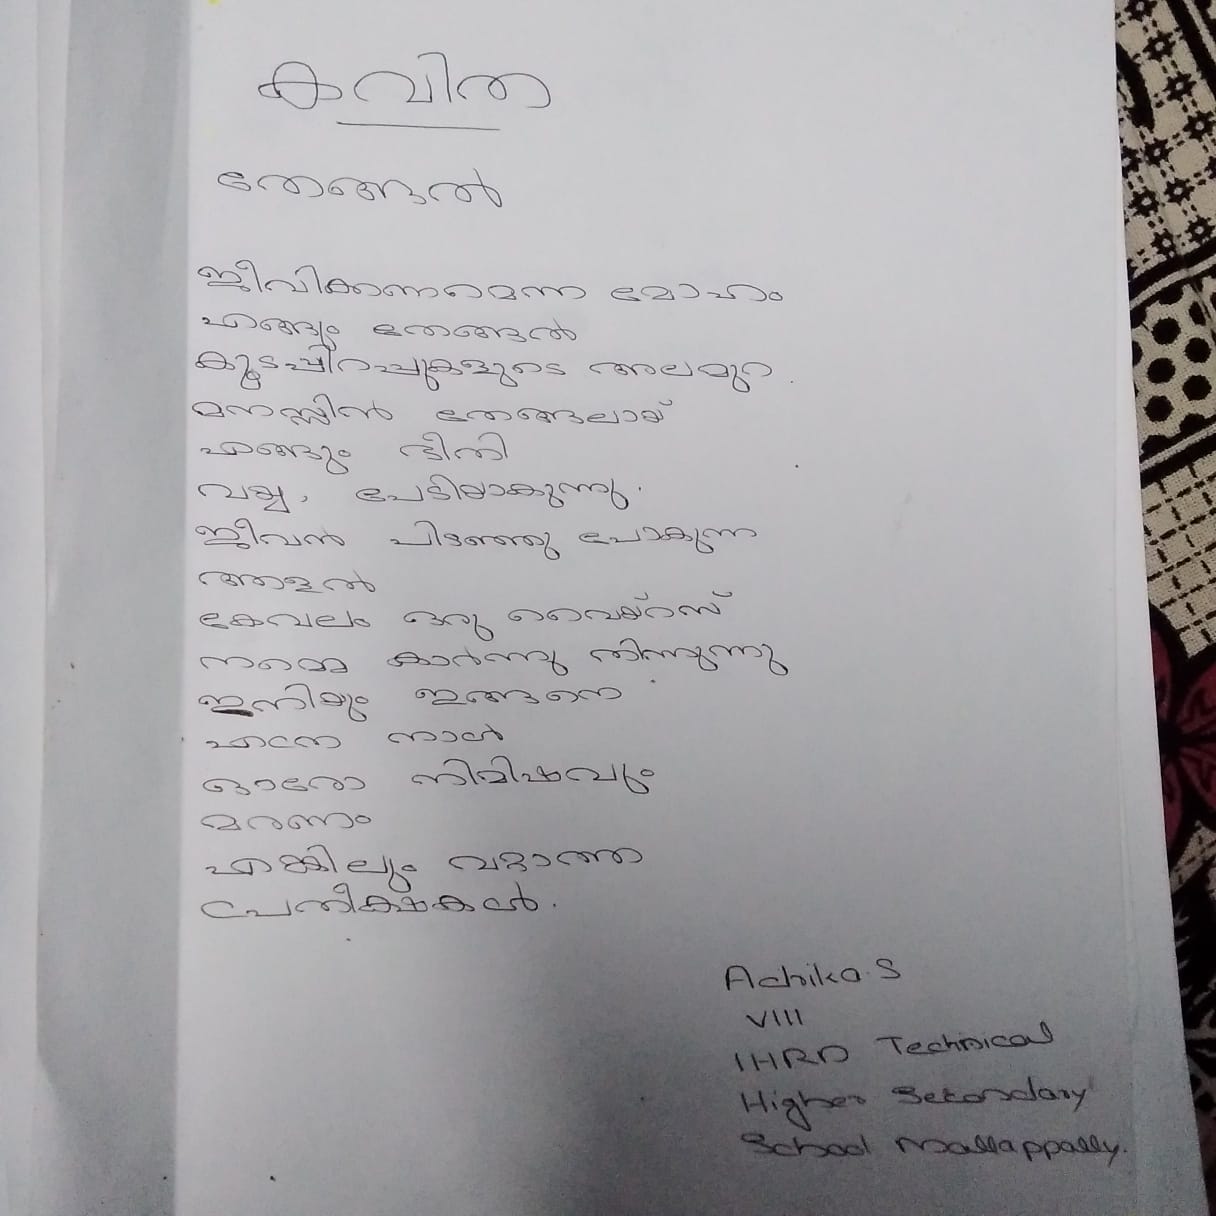 കവിത
തേങ്ങൽ
ജീവിക്കണമെന്ന മോഹം
എങ്ങും തേങ്ങൽ
കൂടപ്പിറപ്പുകളുടെ അലമുറ.
മനസ്സിൻ തേങ്ങലായ്
എങ്ങും ഭീതി
വയ്യ, പേടിയാകുന്നു.
ജീവൻ പിടഞ്ഞു പോകുന്ന
ആളൽ
കേവലം ഒരു വൈയ്റസ്
നമ്മെ കാർന്നു തിന്നുന്നു
ഇനിയും ഇങ്ങനെ
എത്ര നാൾ
ഓരോ നിമിഷവും
മരണം
എങ്കിലും വറ്റാത്ത
പ്രതീക്ഷകൾ.
Achika.S
VIII
IHRD Technical
Higher Secondary
School Mallappally.